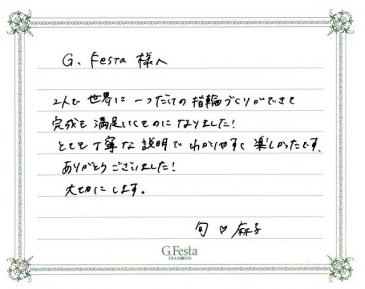 G. Festa 様へ
2人で世界に一つだけの指輪づくりができて
完成も満足いくものになりました!
とても丁寧な説明でわかりやすく楽しかったです。
ありがとうございました!
大切にします。
旬 ♡ 麻子
G.Festa
DIAMOND